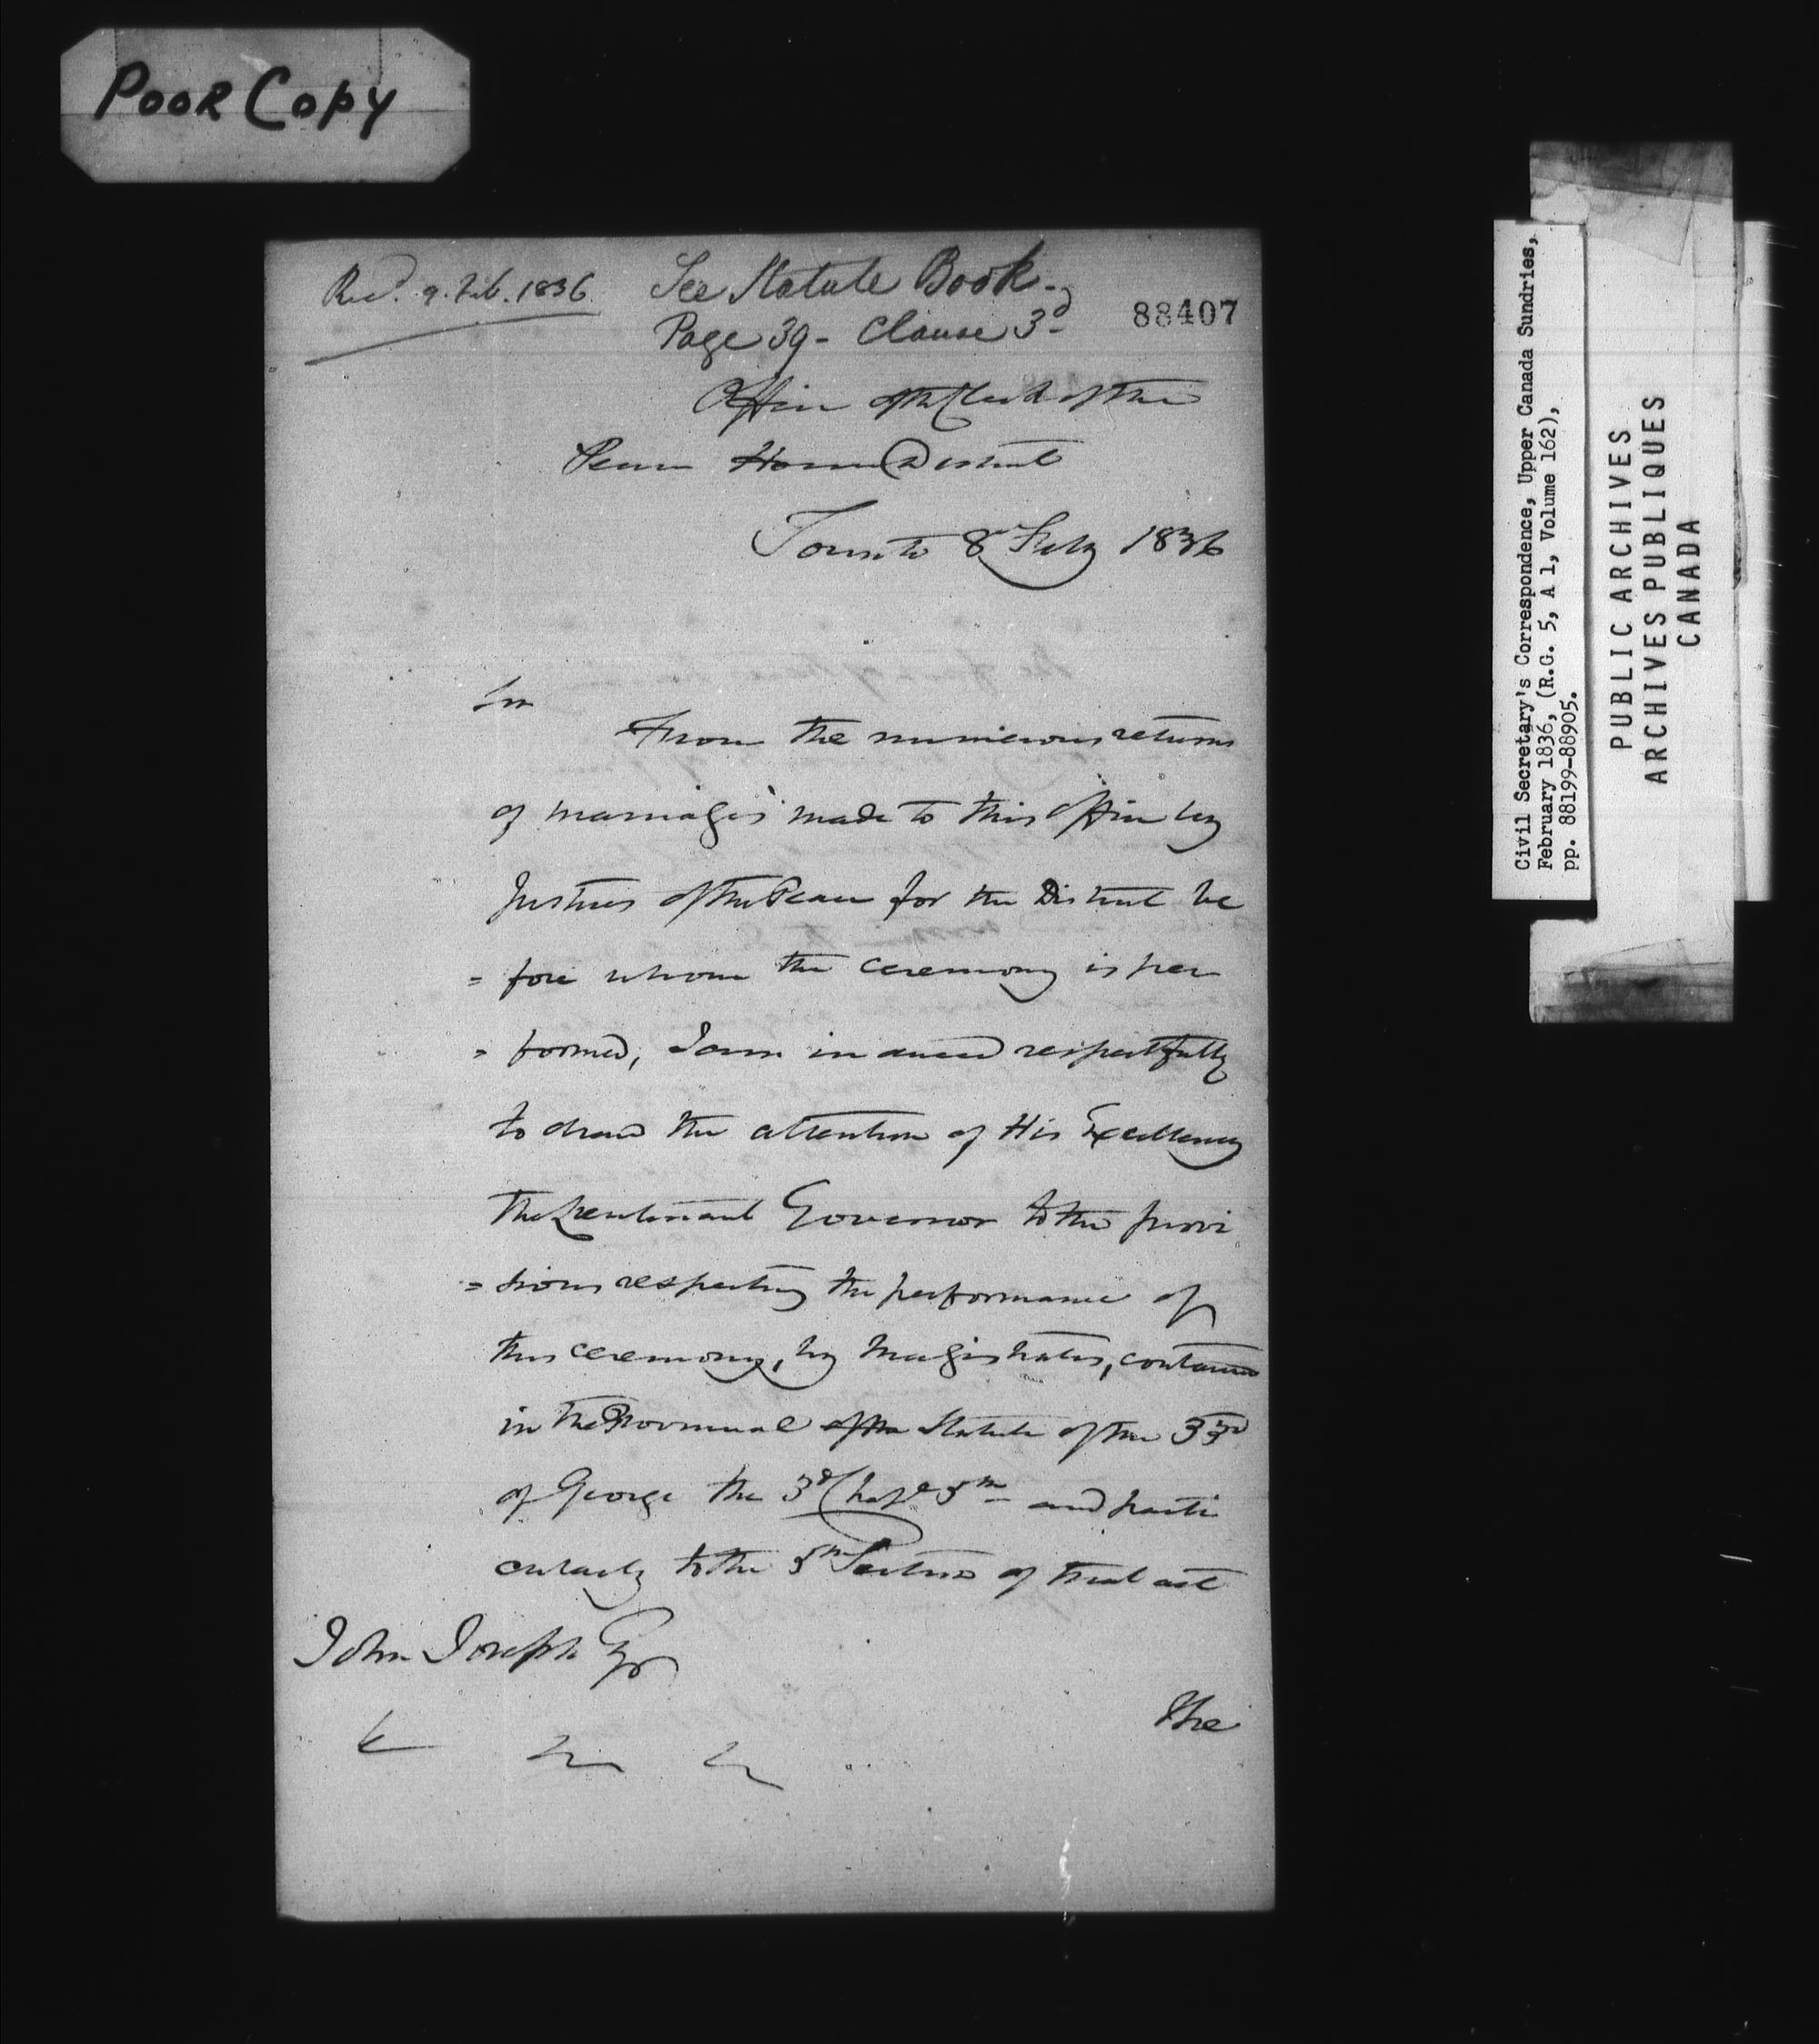 Poor Copy
Recd. 9. Feb. 1836
See Statute Book -
Page 39 - Clause 3d
88407
Office of the Clerk of the
Peace Home District
Toronto 8 Feby 1836
Sir
From the numerous returns
of marriages made to this Office by
Justices of the Peace for the District be
= fore whom the ceremony is per
= formed, I am induced respectfully
to draw the attention of His Excellency
The Lieutenant Governor to the provi
= sions respecting the performance of
this ceremony, by Magistrates, contained
in the Provincial Statute of the 33rd
of George the 3d Chapr 5th and parti
cularly to the 5th Section of that act
John Joseph Esqr
The
Civil Secretary's Correspondence, Upper Canada Sundries,
February 1836, (R.G. 5, A 1, Volume 162),
pp. 88199-88905.
PUBLIC ARCHIVES
ARCHIVES PUBLIQUES
CANADA